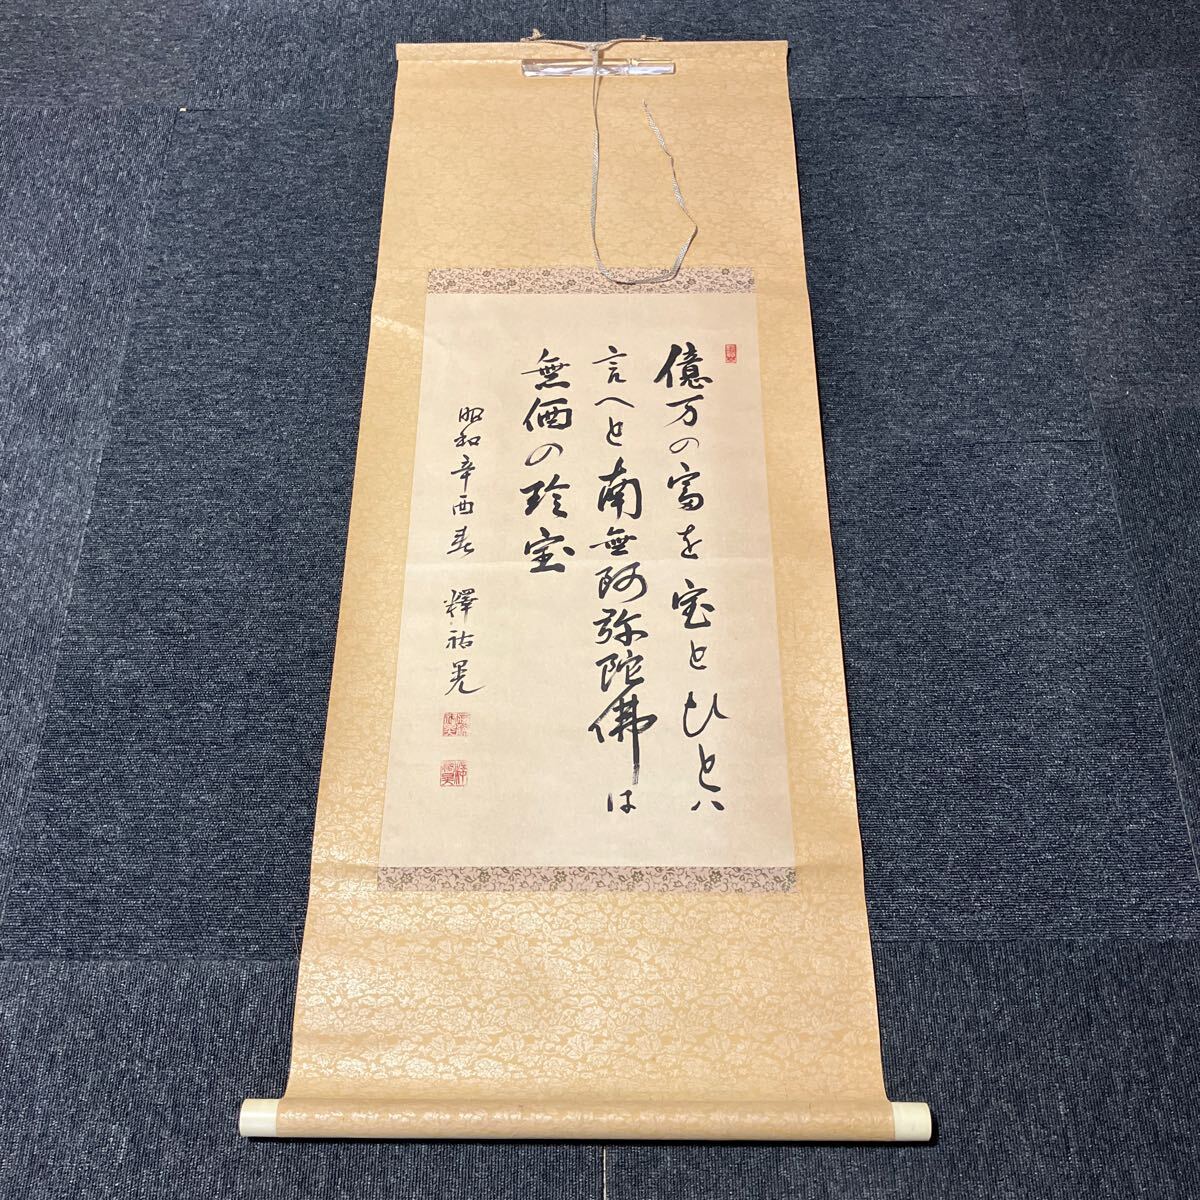 億万の富を宝とひとハ
言へと南無阿弥陀佛は
無価の珍宝
昭和辛酉春 釋祐晃